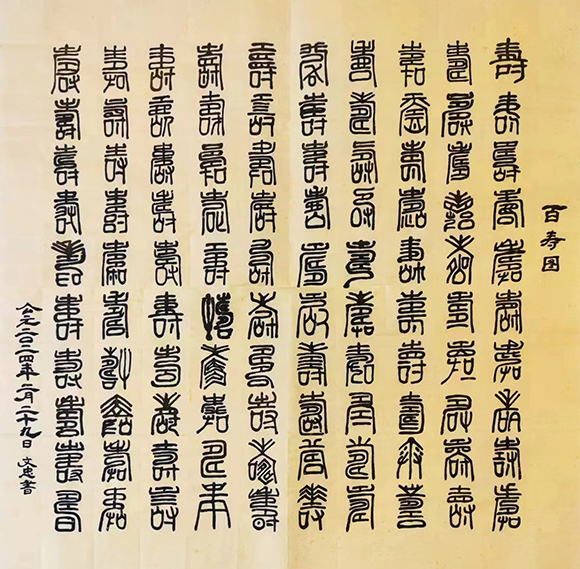 百寿图
壽壽壽壽壽壽壽壽壽壽
壽壽壽壽壽壽壽壽壽壽
壽壽壽壽壽壽壽壽壽壽
壽壽壽壽壽壽壽壽壽壽
壽壽壽壽壽壽壽壽壽壽
壽壽壽壽壽壽壽壽壽壽
壽壽壽壽壽壽壽壽壽壽
壽壽壽壽壽壽壽壽壽壽
壽壽壽壽壽壽壽壽壽壽
壽壽壽壽壽壽壽壽壽壽
公元二〇二四年二月二十九日 文書